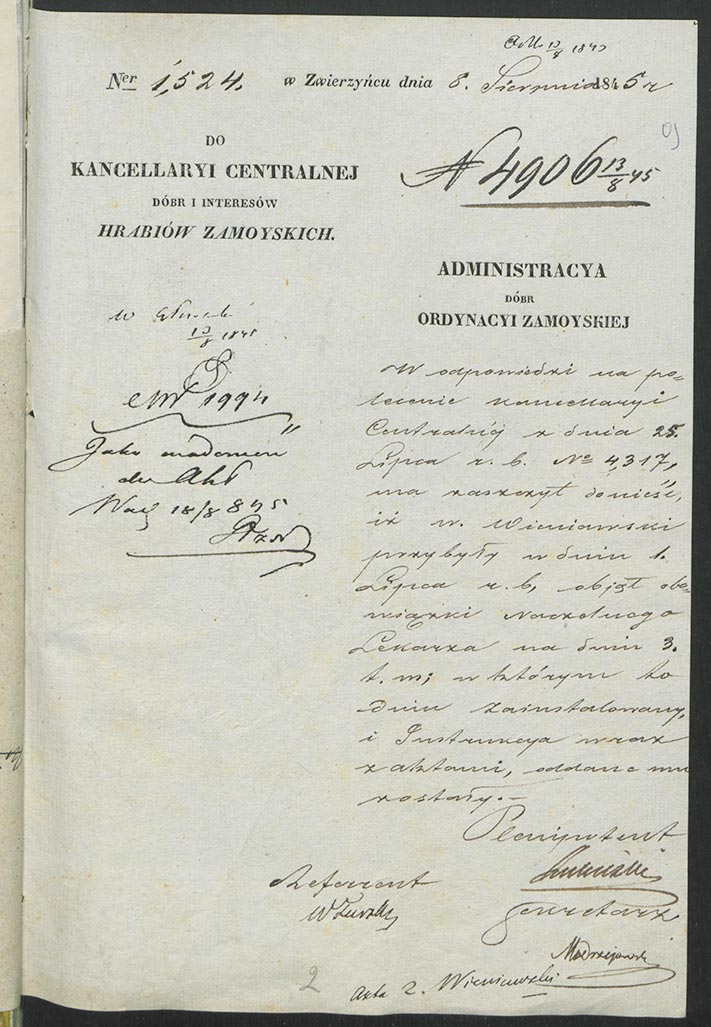 13/8 1845
Ner 1,524. w Zwierzyńcu dnia 8. Sierpnia 1845 r
DO
KANCELLARYI CENTRALNEJ
DÓBR I INTERESÓW
HRABIÓW ZAMOYSKICH.
N 4906 13/8 45
ADMINISTRACYA
DÓBR
ORDYNACYI ZAMOYSKIEJ
W
13/8 1845
1994
Jako wiadomość
do Akt
18/8 845
W odpowiedzi na po-
lecenie Kancellaryi
Centralnéj z dnia 25.
Lipca r. b. No 4,317,
ma zaszczyt donieść,
iż W. Wieniawski
przybyły w dniu 1.
Lipca r. b, objął obo-
wiązki Naczelnego
Lekarza na dniu 3.
t. m; w którym to
dniu zainstalowany,
i Instrukcya wraz
z aktami, oddane mu
zostały.—
Plenipotent
Referent
Sekretarz
Modrzejewski
2
Akta 2. Wieniawski